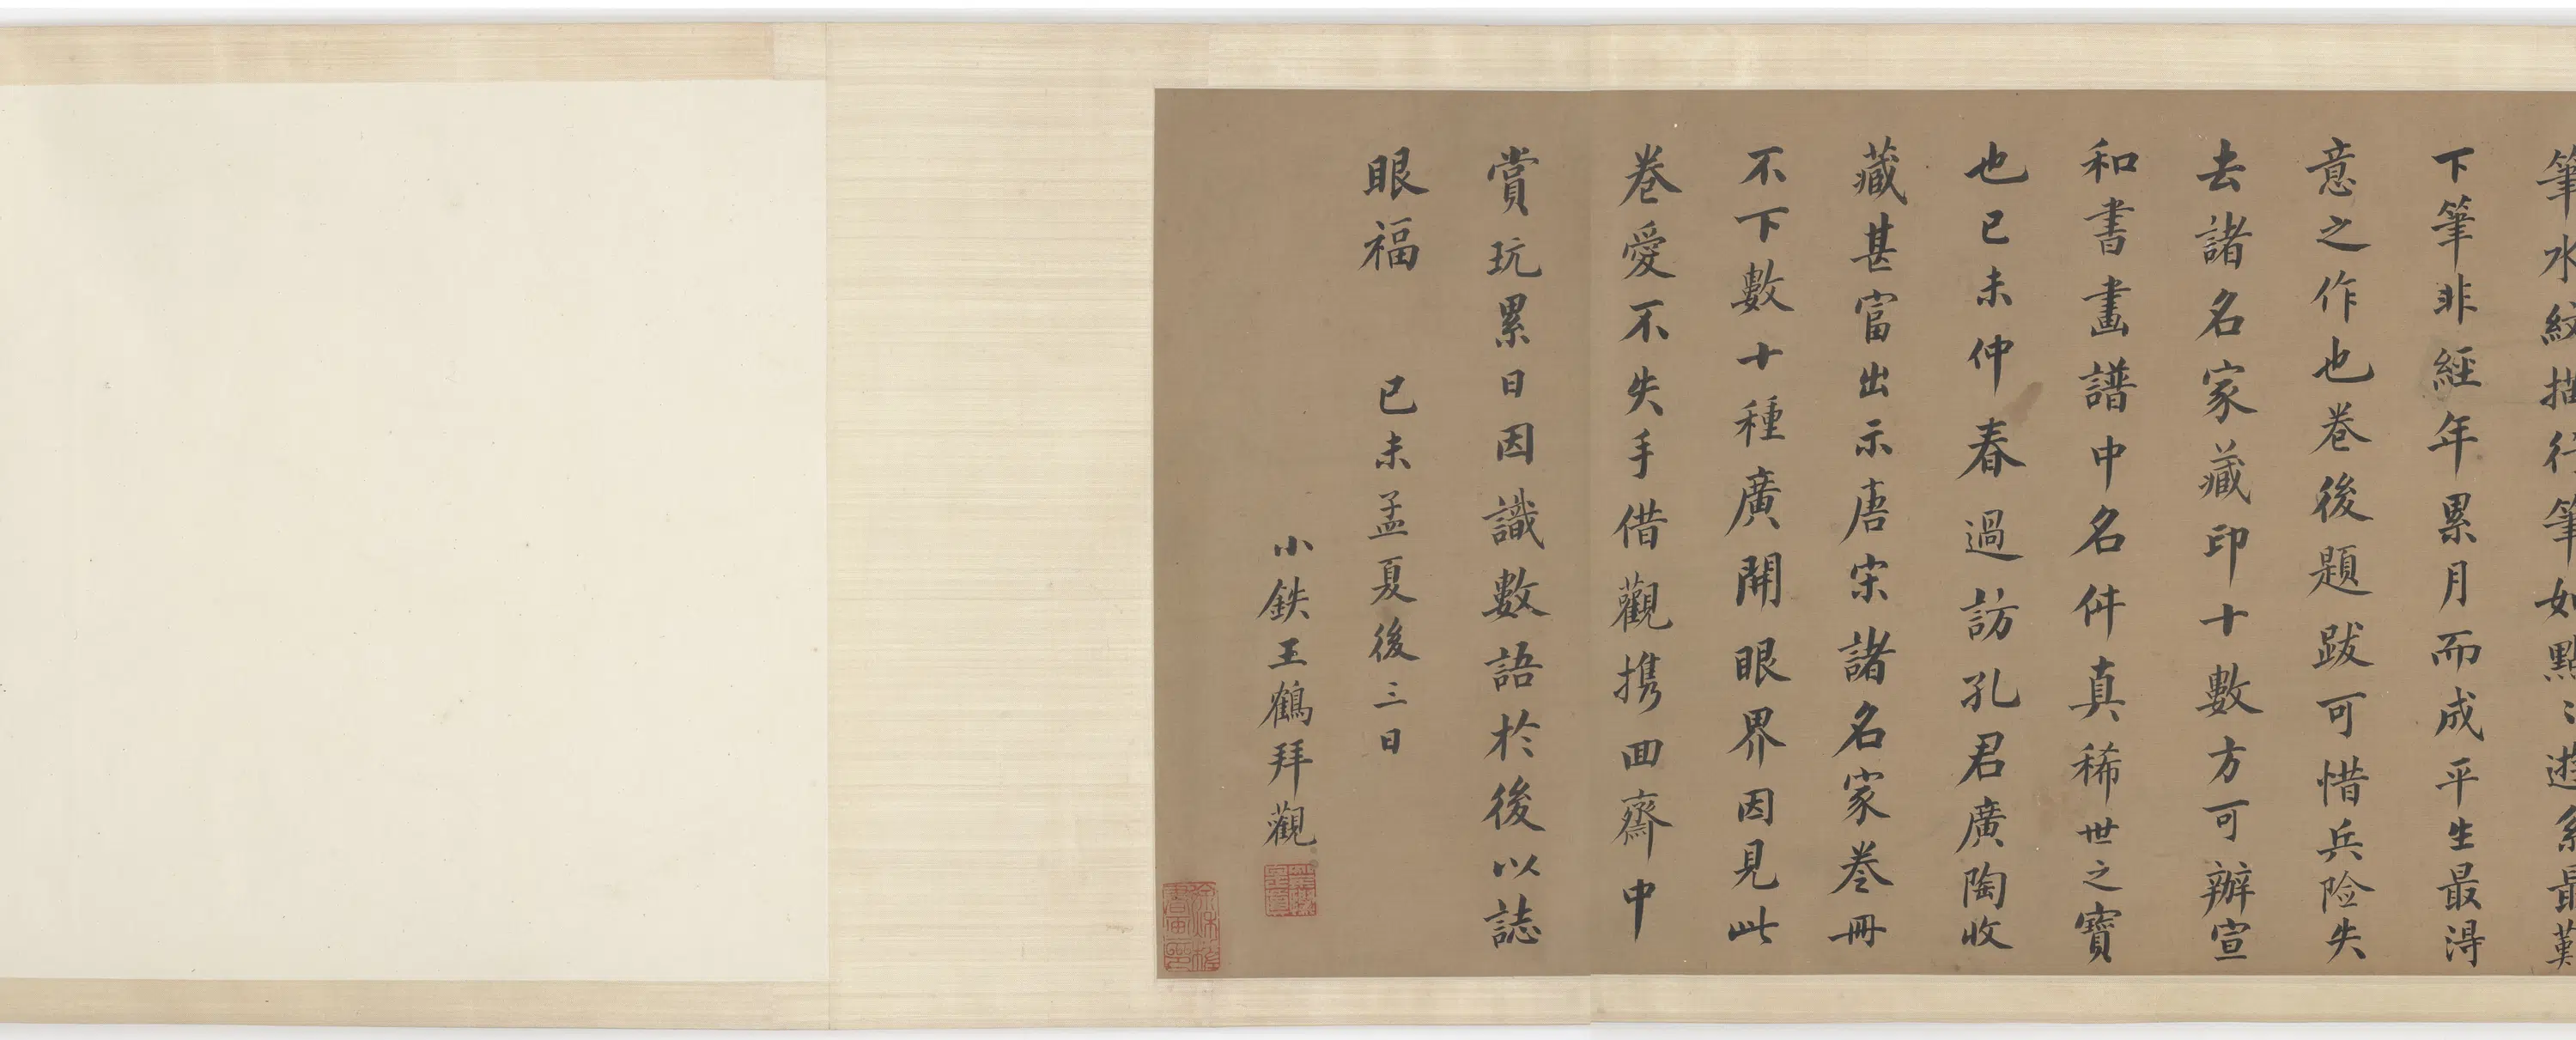 筆水紋描行筆如點〻遊絲最難
下筆非經年累月而成平生最得
意之作也卷後題跋可惜兵险失
去諸名家藏印十數方可辦宣
和書畫譜中名件真稀世之寶
也已未仲春過訪孔君廣陶收
藏甚富出示唐宋諸名家卷冊
不下數十種廣開眼界因見此
卷愛不失手借觀携回齋中
賞玩累日因識數語於後以誌
眼福 已未孟夏後三日
小鉄王鶴拜觀